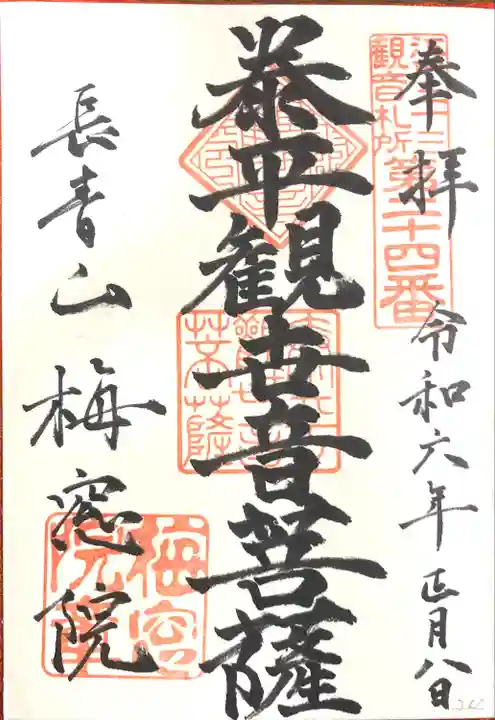 奉拝
令和六年正月八日
江戸三十三
観音札所
第二十四番
泰平観世音菩薩
長青山
梅窓院